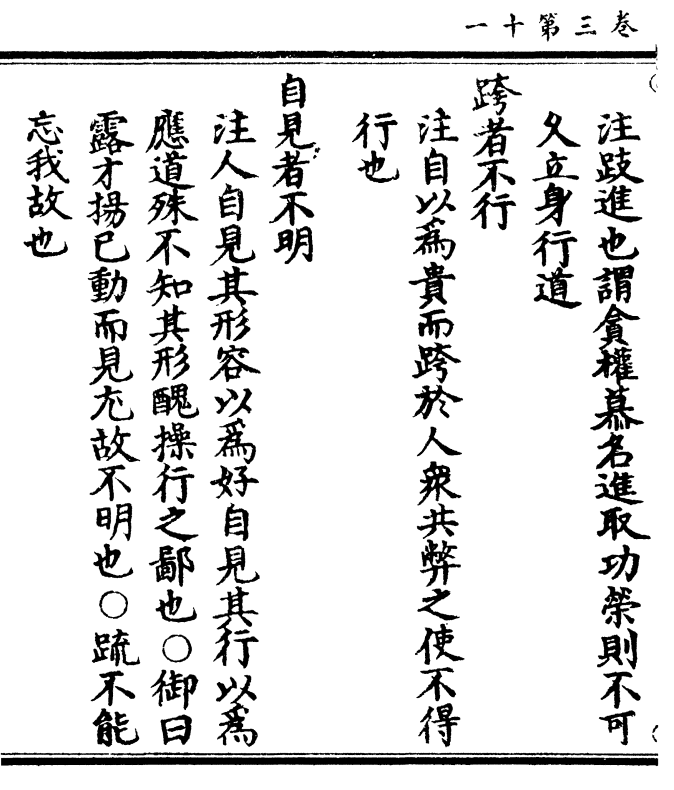 卷三第十一
注跂進也謂貪權慕名進取功榮則不可
乆立身行道
跨者不行
注自以爲貴而跨於人衆共弊之使不得
行也
自見者不明
注人自見其形容以爲好自見其行以爲
應道殊不知其形醜操行之鄙也○御曰
露才揚已動而見尤故不明也○䟽不能
忘我故也